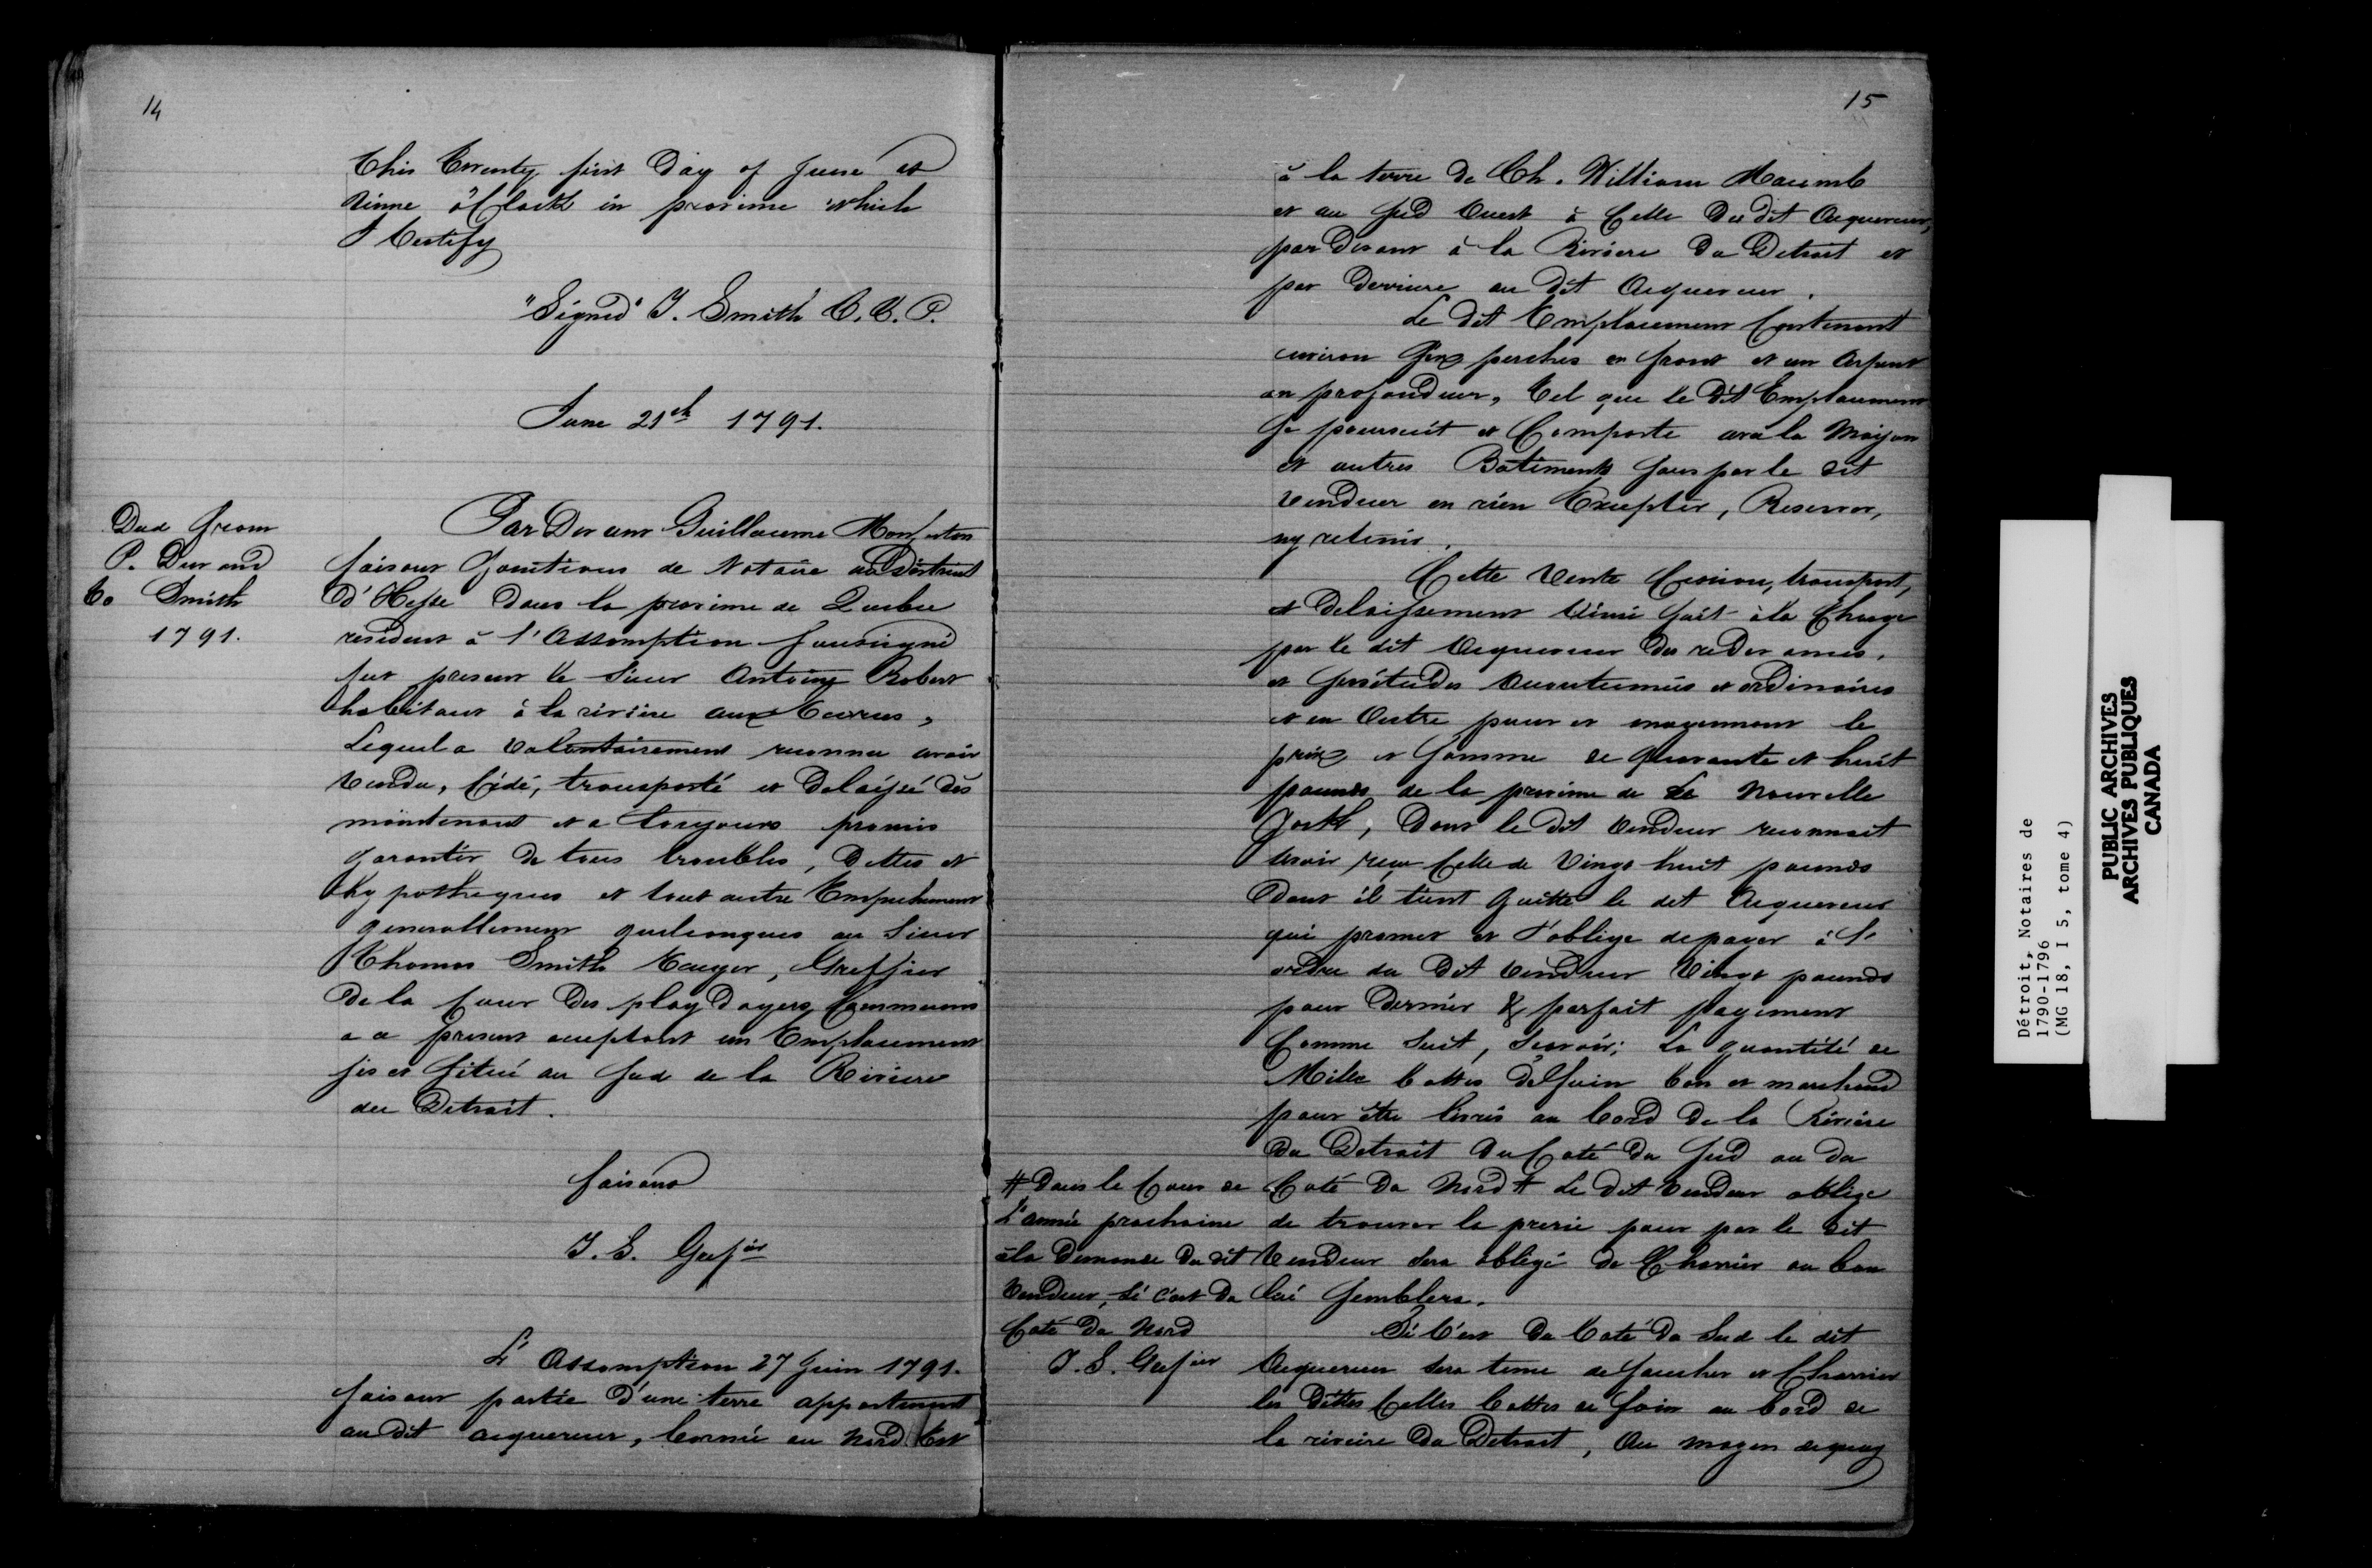 14
This Twenty first Day of June at
Ninne o'Clock in provime which
I Certify
"Signed" T. Smith C. C. P.
June 21th 1791.
Deed from
P. Durand
to Smith
1791.
Par Devant Guillaume Monforton
faisant fonctions de Notaire au District
D'Hesse dans la province de Quebec
resident à l'Assomption soussigné
fut present le Sieur Antoine Robert
habitant à la rivière aux
Lequel a volontairement reconnu avoir
vendu, cédé, transporté et delaissé dès
maintenant et a toujours promis
garantir de tous troubles, Dettes et
hypotheques et tout autre Empechement
generallement quelconques au Sieur
Thomas Smith Ecuyer, Greffier
de la Cour des playdoyers Communs
a a present acceptant un Emplacement
sis et situé au Sud de la Riviere
du Detroit.
faisant
T. S. Grefier
L'Assomption 27 Juin 1791.
faisant partie d'une terre appartenant
au dit acquereur, borné au Nord Est
15
à la terre de Ch. William Macomb
et au Sud Ouest à Celle du dit Acquereur,
par devant à la Riviere du Detroit et
par derriere au dit Acquereur.
Le dit Emplacement Contenant
environ Six perches en front et un Arpent
en profondeur, Tel que le dit Emplacement
se poursuit et Comporte avec la Maison
et autres Batiments sans par le dit
vendeur en rien Excepter, Reserver,
ny retenir.
Cette Vente Cession, transport,
et Delaissement ainsi fait à la Charge
par le dit Acquereur des redevances,
et servitudes accoutumées et ordinaires
et en Outre pour et moyennant le
prix et somme de quarante et huit
pounds de la province de la Nouvelle
York, Dont le dit vendeur reconnait
avoir reçu Celle de Vingt huit pounds
Dont il tient quitte le dit Acquereur
qui promet et s'oblige de payer à l'
ordre du dit Vendeur Vingt pounds
pour dernier & parfait payement
Comme Suit, Scavoir; La quantité de
Mille bottes de foin bon et marchand
pour être livrés au bord de la Riviere
du Detroit du Coté du Sud ou du
Coté du Nord # Le dit Vendeur oblige
de trouver la prerie pour par le dit
Vendeur sera obligé de Charier ou bon
lui semblera.
# Dans le Cours de
L'année prochaine
à la Demande du dit
Vendeur, Si c'est du
Coté du Nord
T. S. Grefier
Si C'est du Coté du Sud le dit
Acquereur sera tenu de faucher et Charrier
les dittes bottes de foin au bord de
la riviere du Detroit, Au moyen de quoy
Détroit, Notaires de
1790-1796
(MG 18, I 5, tome 4)
PUBLIC ARCHIVES
ARCHIVES PUBLIQUES
CANADA